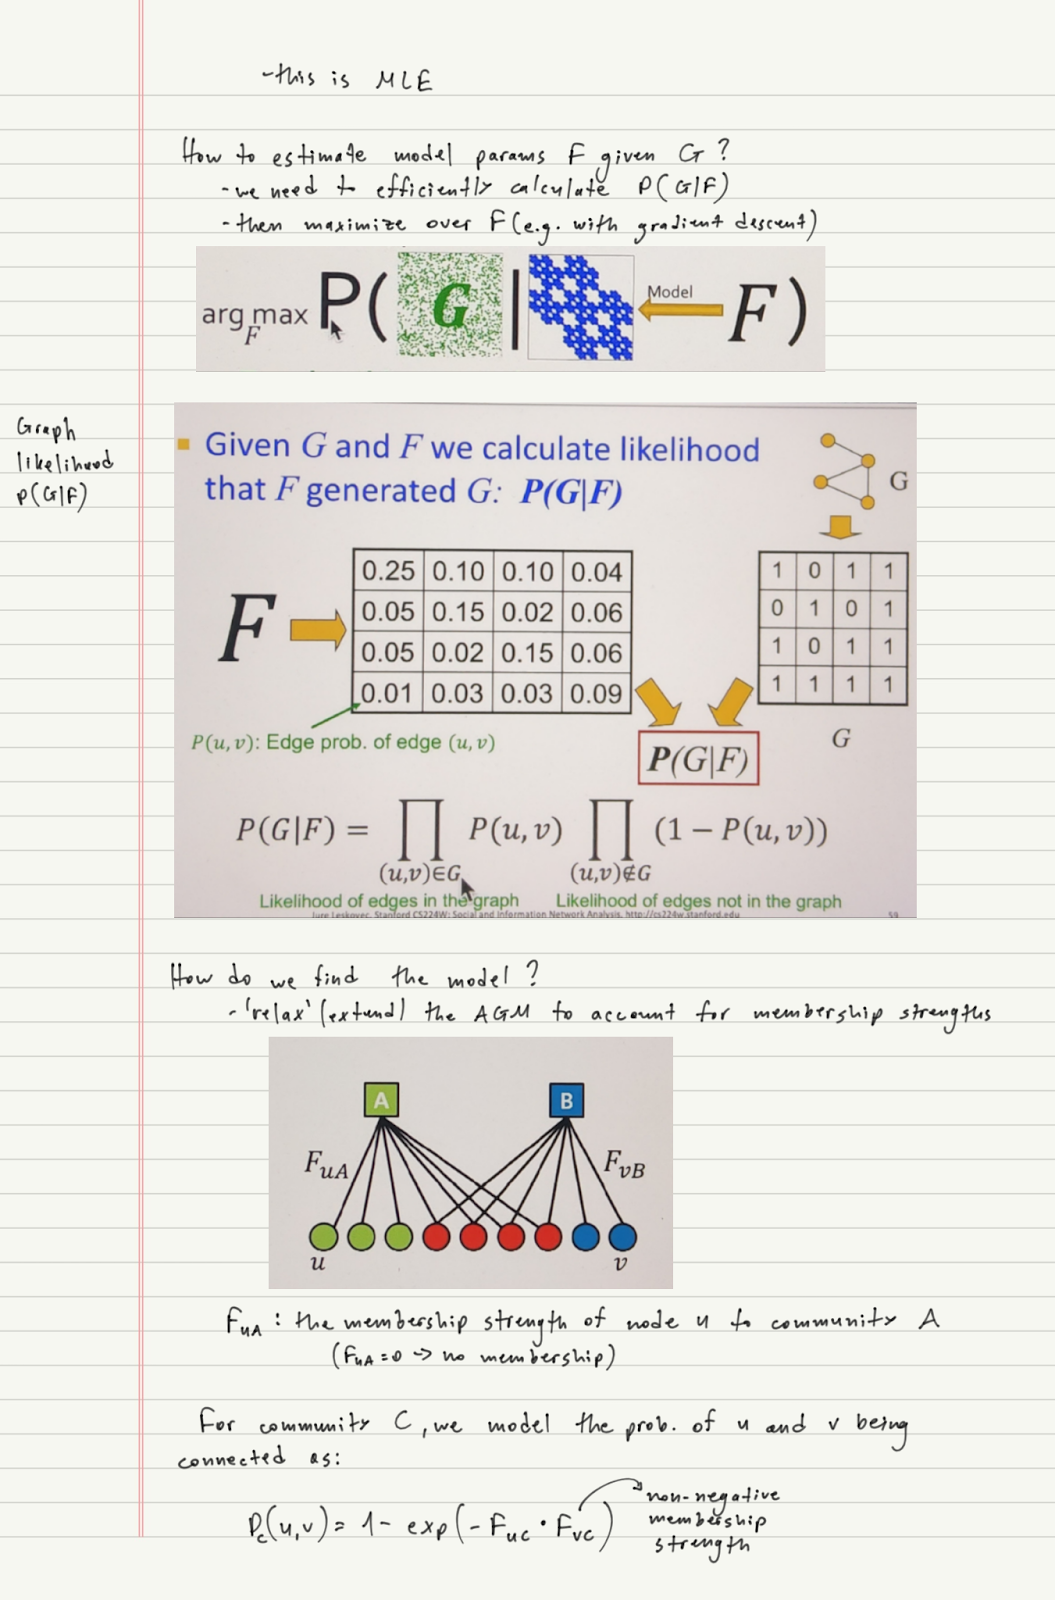 -this is MLE
How to estimate model params F given G?
-we need to efficiently calculate P(G|F)
-then maximize over F (e.g. with gradient descent)
arg max P( G | Model F )
F
Graph
likelihood
P(G|F)
Given G and F we calculate likelihood
that F generated G: P(G|F)
G
F
0.25 0.10 0.10 0.04
0.05 0.15 0.02 0.06
0.05 0.02 0.15 0.06
0.01 0.03 0.03 0.09
1 0 1 1
0 1 0 1
1 0 1 1
1 1 1 1
P(u, v): Edge prob. of edge (u, v)
G
P(G|F)
P(G|F) = ∏ P(u, v) ∏ (1 − P(u, v))
(u,v)∈G (u,v)∉G
Likelihood of edges in the graph Likelihood of edges not in the graph
Jure Leskovec, Stanford CS224W: Social and Information Network Analysis, http://cs224w.stanford.edu 59
How do we find the model?
-'relax' (extend) the AGM to account for membership strengths
A B
FuA FvB
u v
FuA : the membership strength of node u to community A
(FuA=0 → no membership)
For community C, we model the prob. of u and v being
connected as:
Pc(u,v) = 1 - exp(-Fuc · Fvc)
non-negative
membership
strength